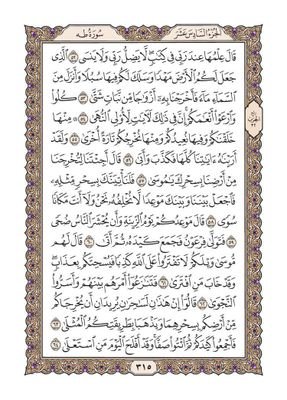 الجزء السادس عشر
سورة طه
قَالَ عِلْمُهَا عِندَ رَبِّي فِي كِتَٰبٍ لَّا يَضِلُّ رَبِّي وَلَا يَنسَى ٥٢ ٱلَّذِي
جَعَلَ لَكُمُ ٱلْأَرْضَ مَهْدًا وَسَلَكَ لَكُمْ فِيهَا سُبُلًا وَأَنزَلَ مِنَ
ٱلسَّمَآءِ مَآءً فَأَخْرَجْنَا بِهِۦٓ أَزْوَٰجًا مِّن نَّبَاتٍ شَتَّىٰ ٥٣ كُلُوا۟
وَٱرْعَوْا۟ أَنْعَٰمَكُمْ إِنَّ فِي ذَٰلِكَ لَءَايَٰتٍ لِّأُو۟لِي ٱلنُّهَىٰ ٥٤ مِنْهَا
خَلَقْنَٰكُمْ وَفِيهَا نُعِيدُكُمْ وَمِنْهَا نُخْرِجُكُمْ تَارَةً أُخْرَىٰ ٥٥ وَلَقَدْ
أَرَيْنَٰهُ ءَايَٰتِنَا كُلَّهَا فَكَذَّبَ وَأَبَىٰ ٥٦ قَالَ أَجِئْتَنَا لِتُخْرِجَنَا
مِنْ أَرْضِنَا بِسِحْرِكَ يَٰمُوسَىٰ ٥٧ فَلَنَأْتِيَنَّكَ بِسِحْرٍ مِّثْلِهِۦ
فَٱجْعَلْ بَيْنَنَا وَبَيْنَكَ مَوْعِدًا لَّا نُخْلِفُهُۥ نَحْنُ وَلَآ أَنتَ مَكَانًا
سُوًى ٥٨ قَالَ مَوْعِدُكُمْ يَوْمُ ٱلزِّينَةِ وَأَن يُحْشَرَ ٱلنَّاسُ ضُحًى
٥٩ فَتَوَلَّىٰ فِرْعَوْنُ فَجَمَعَ كَيْدَهُۥ ثُمَّ أَتَىٰ ٦٠ قَالَ لَهُم
مُّوسَىٰ وَيْلَكُمْ لَا تَفْتَرُوا۟ عَلَى ٱللَّهِ كَذِبًا فَيُسْحِتَكُم بِعَذَابٍ
وَقَدْ خَابَ مَنِ ٱفْتَرَىٰ ٦١ فَتَنَٰزَعُوٓا۟ أَمْرَهُم بَيْنَهُمْ وَأَسَرُّوا۟
ٱلنَّجْوَىٰ ٦٢ قَالُوٓا۟ إِنْ هَٰذَٰنِ لَسَٰحِرَٰنِ يُرِيدَانِ أَن يُخْرِجَاكُم
مِّنْ أَرْضِكُم بِسِحْرِهِمَا وَيَذْهَبَا بِطَرِيقَتِكُمُ ٱلْمُثْلَىٰ ٦٣
فَأَجْمِعُوا۟ كَيْدَكُمْ ثُمَّ ٱئْتُوا۟ صَفًّا وَقَدْ أَفْلَحَ ٱلْيَوْمَ مَنِ ٱسْتَعْلَىٰ ٦٤
٣١٥